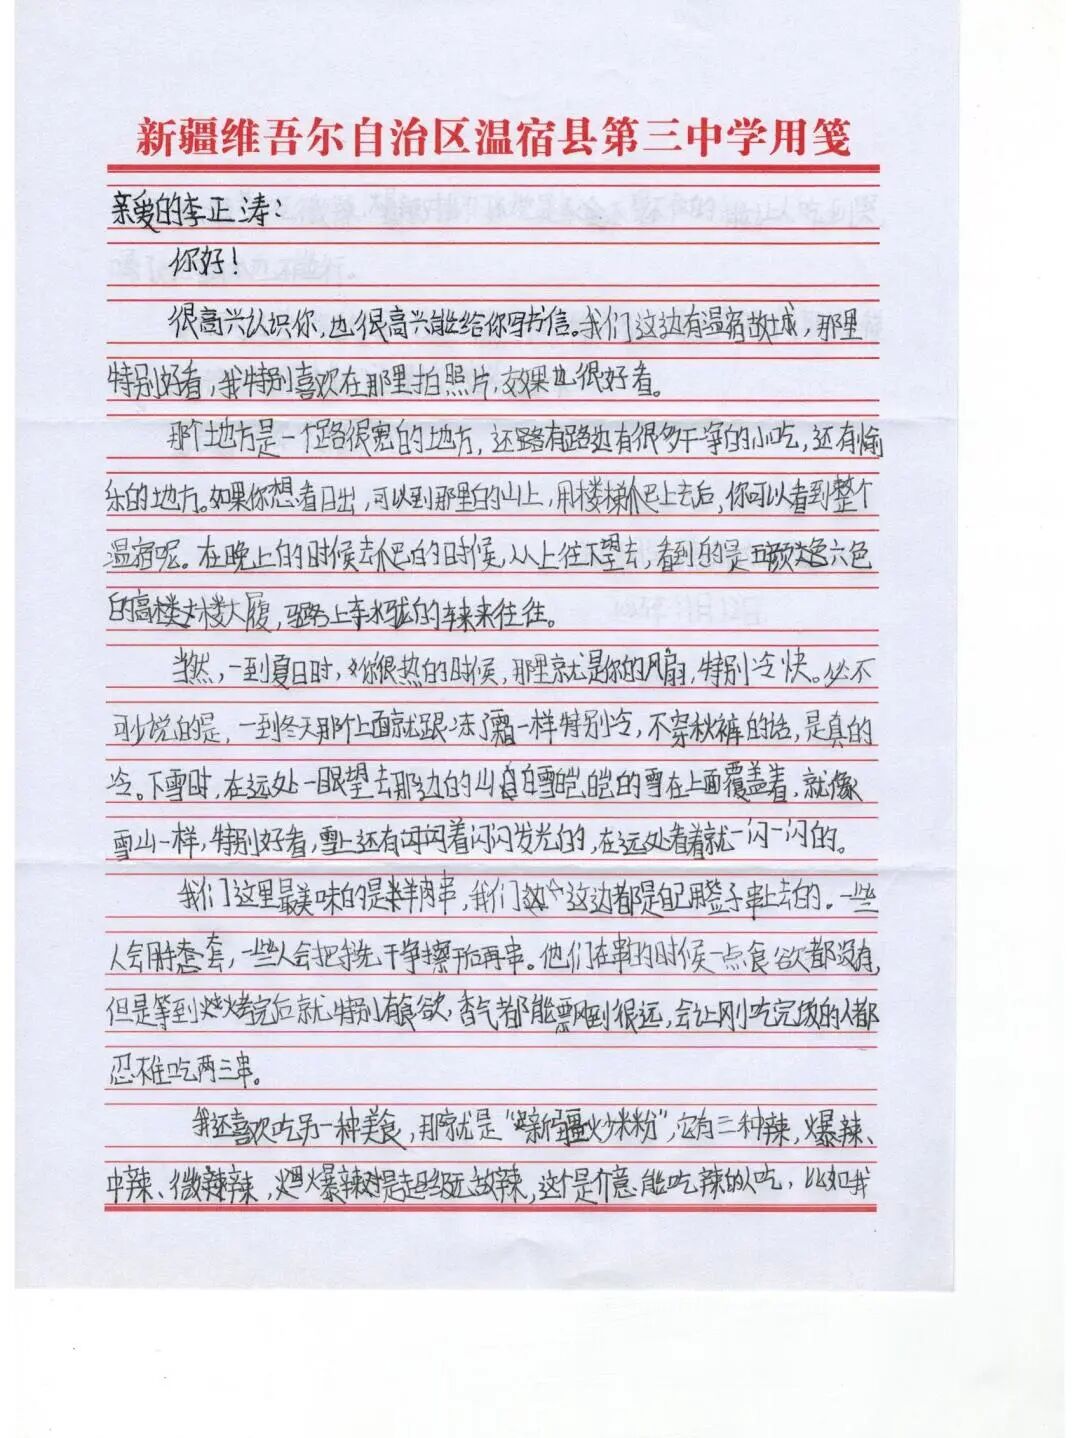 新疆维吾尔自治区温宿县第三中学用笺
亲爱的李正涛：
你好！
很高兴认识你，也很高兴能给你写书信。我们这边有温宿故城，那里
特别好看，我特别喜欢在那里拍照片，效果也很好看。
那个地方是一个路很宽的地方，还路有路边有很多干净的小吃，还有愉
乐的地方。如果你想看日出，可以到那里的山上，用楼梯爬上去后，你可以看到整个
温宿呢。在晚上的时候去爬的时候，从上往下望去，看到的是五颜六色
的高楼大履，路上车水马龙的车来来往往。
当然，一到夏日时，你很热的时候，那里就是你的风扇，特别冷快。必不
可少说的是，一到冬天那个上面就跟冻了霜一样特别冷，不穿秋裤的话，是真的
冷。下雪时，在远处一眼望去那边的山白雪皑皑的雪在上面覆盖着，就像
雪山一样，特别好看，雪上还有闪闪发光的，在远处看着就一闪一闪的。
我们这里最美味的是羊肉串，我们这边都是自己用签子串上去的。一些
人会用手套，一些人会把手洗干净擦后再串。他们在串的时候一点食欲都没有，
但是等到烧烤完后就特别有食欲，香气都能飘到很远，会让刚吃完饭的人都
忍不住吃两三串。
我还喜欢吃另一种美食，那就是“新疆炒米粉”，它有三种辣，爆辣、
中辣、微辣，爆辣是超级无敌辣，这个是介意能吃辣的人吃，比如我